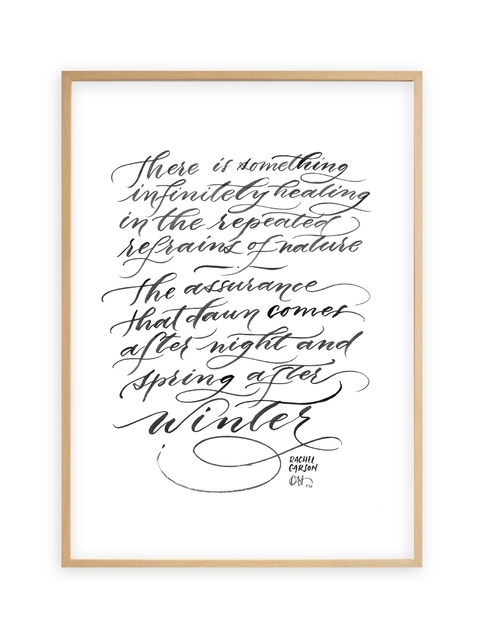 There is something
infinitely healing
in the repeated
refrains of nature
—
the assurance
that dawn comes
after night and
spring after
winter
RACHEL
CARSON